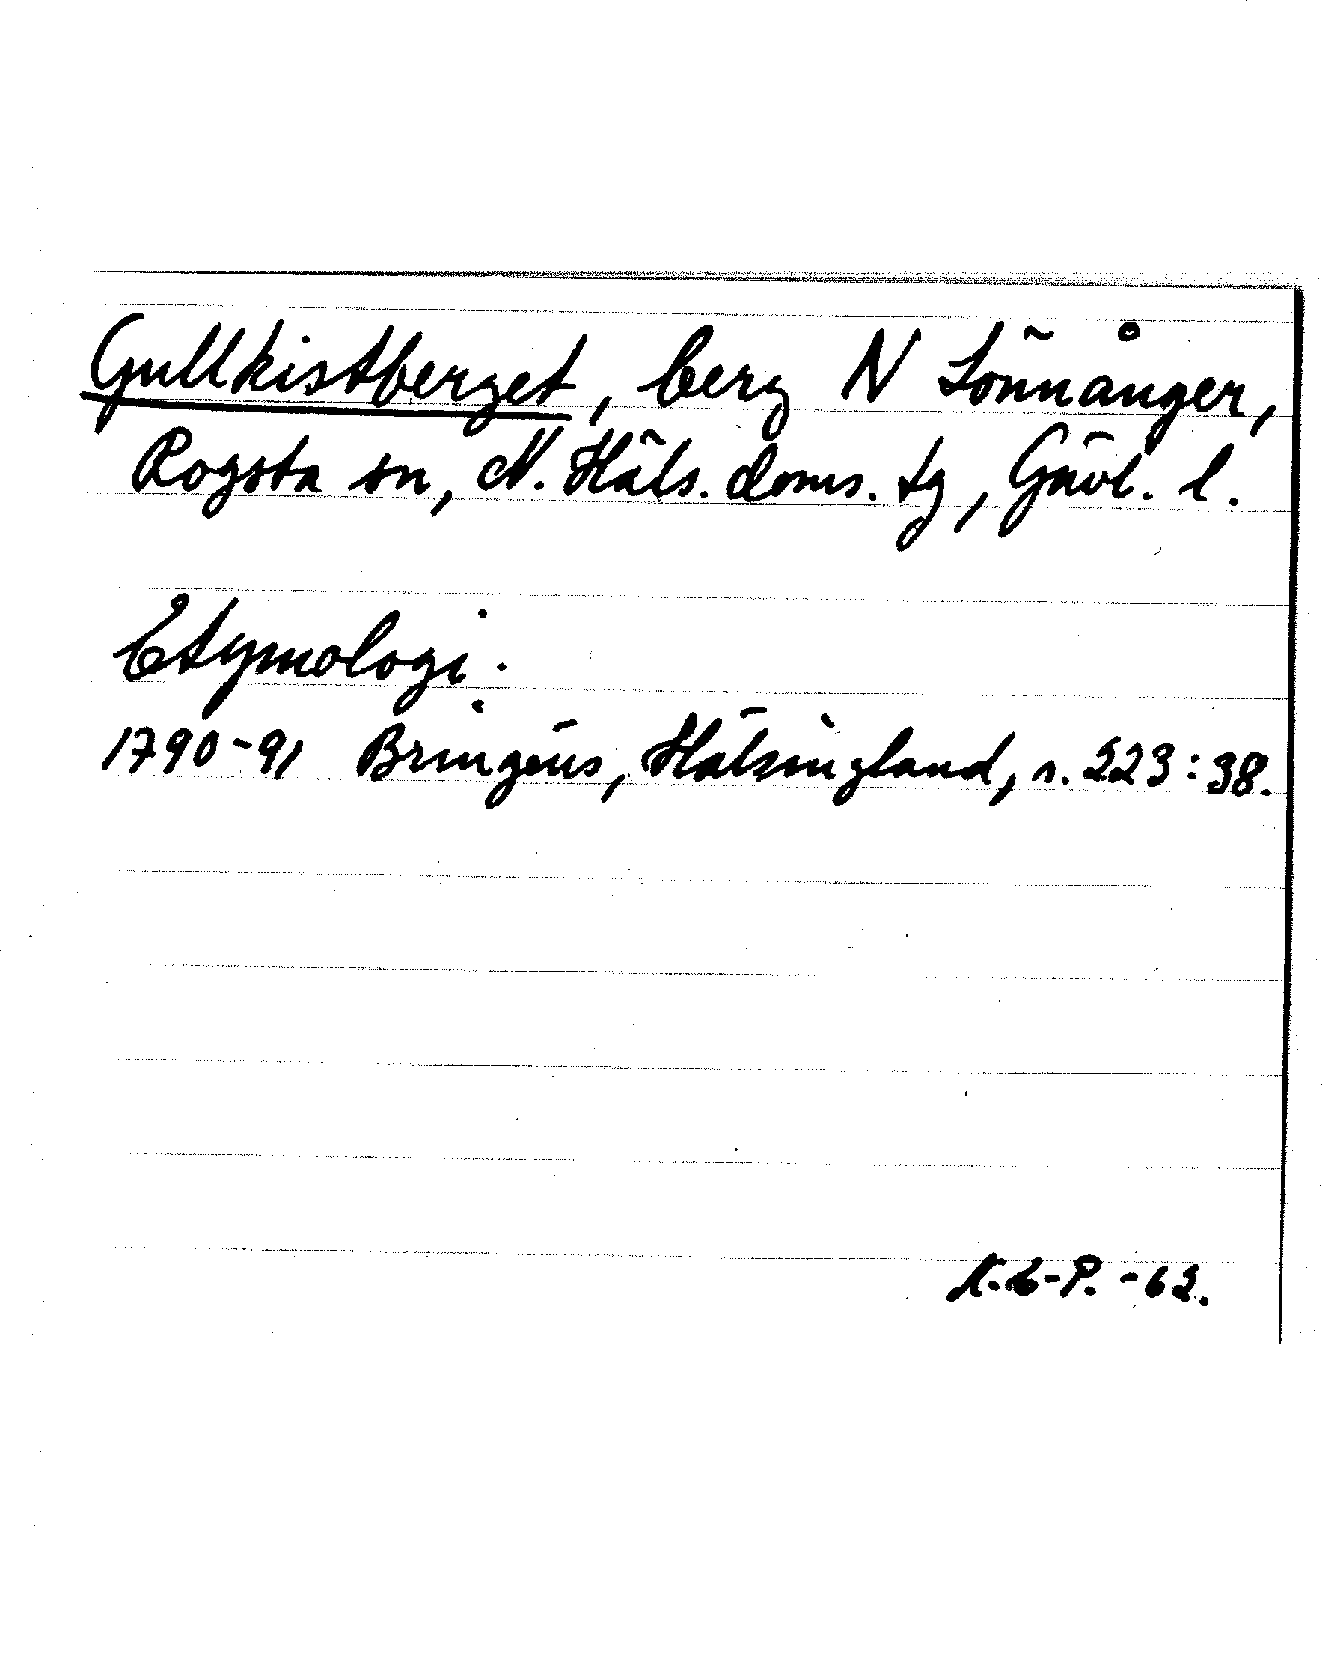 Gullkistberget, berg N Lönnånger,
Rogsta sn, N. Häls. doms. tg, Gävl. l.
Etymologi.
1790-91 Bringéus, Hälsingland, s. 223:38.
N.L-P. -62.